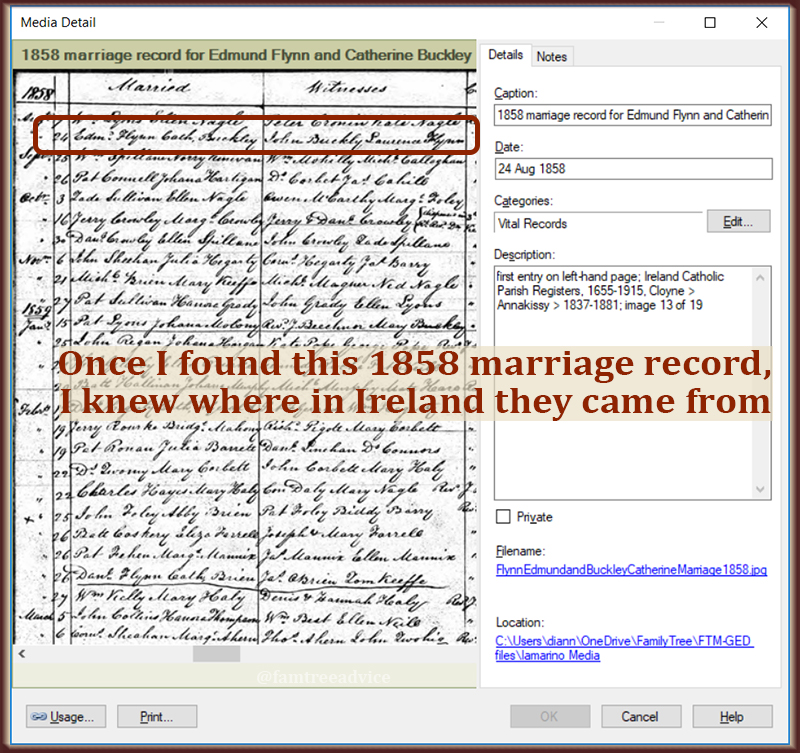 Media Detail
1858 marriage record for Edmund Flynn and Catherine Buckley
1858 Married Witnesses
Wm Lyons Ellen Nagle Peter Cronin Kate Nagle
24 Edmd Flynn Cath. Buckley John Buckly Laurence Flynn
Septr 25 Wm Spillane Norry Kinivan Wm Mohilly Michl Callaghan
26 Pat Connell Johana Hartigan Ds Corbet Jas Cahill
Octbr 3 Zade Sullivan Ellen Nagle Owen McCarthy Margt Foley
16 Jerry Crowley Margt Crowly Jerry & Danl Crowley
30 Danl Crowley Ellen Spillane John Crowley Zade Spillane
Novr 6 John Sheehan Julia Hegarty Corns Hegarty Jas Barry
21 Michl Brien Mary Keeffe Michl Magner Ned Nagle
27 Pat Sullivan Hanae Grady John Grady Ellen Lyons
1859
Jany 15 Pat Lyons Johana Molony Revd J Beechnor Mary Buckley
25 John Regan Johana
Once I found this 1858 marriage record,
I knew where in Ireland they came from
Febr
19 Jerry Rourke Bridgt Mahony Richd Pigott Mary Corbett
19 Pat Ronan Julia Barrett Danl Linehan Ds Connors
22 Ds Twomy Mary Corbett John Corbett Mary Haly
22 Charles Hayes Mary Haly Con Daly Mary Nagle Revd J
25 John Foley Abby Brien Pat Foley Biddy Barry
26 Batt Coskery Eliza Farrell Joseph & Mary Farrell
26 Pat Fehen Margt Mannix Jas Mannix Ellen Mannix
26 Danl Flynn Cath. Brien Jas OBrien Tom Keeffe
27 Wm Kelly Mary Haly Denis & Hannah Haly Revd J
March 5 John Collins Hanora Thompson Wm Best Ellen Neile
6 Corns Sheahan Margt Ahern Thos Ahern John Twohig Revd
@famtreeadvice
Details Notes
Caption:
1858 marriage record for Edmund Flynn and Catherin
Date:
24 Aug 1858
Categories:
Vital Records Edit...
Description:
first entry on left-hand page; Ireland Catholic
Parish Registers, 1655-1915, Cloyne >
Annakissy > 1837-1881; image 13 of 19
Private
Filename:
FlynnEdmundandBuckleyCatherineMarriage1858.jpg
Location:
C:\Users\diann\OneDrive\FamilyTree\FTM-GED
files\Iamarino Media
Usage... Print... OK Cancel Help